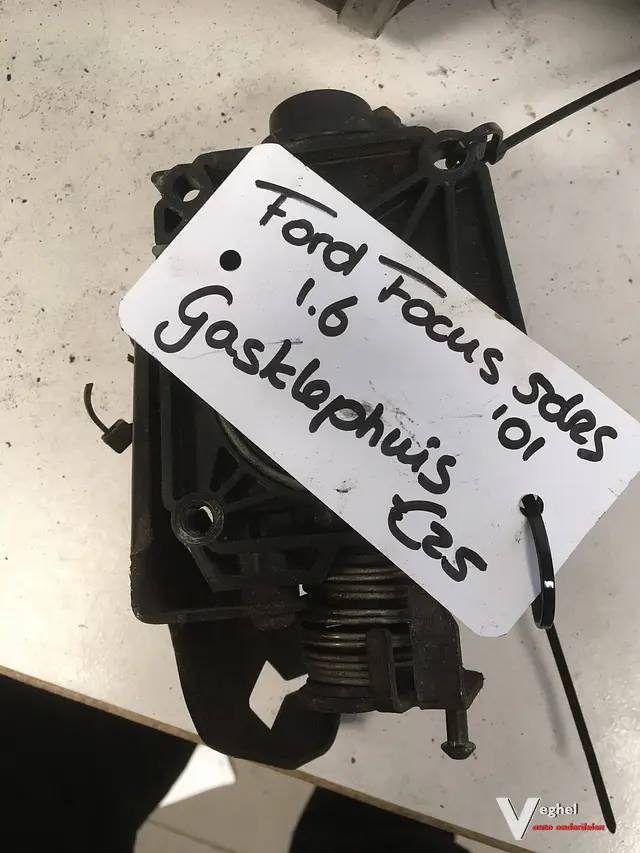 Ford Focus 5drs
1.6 '01
Gasklephuis
€25
Veghel
auto onderdelen